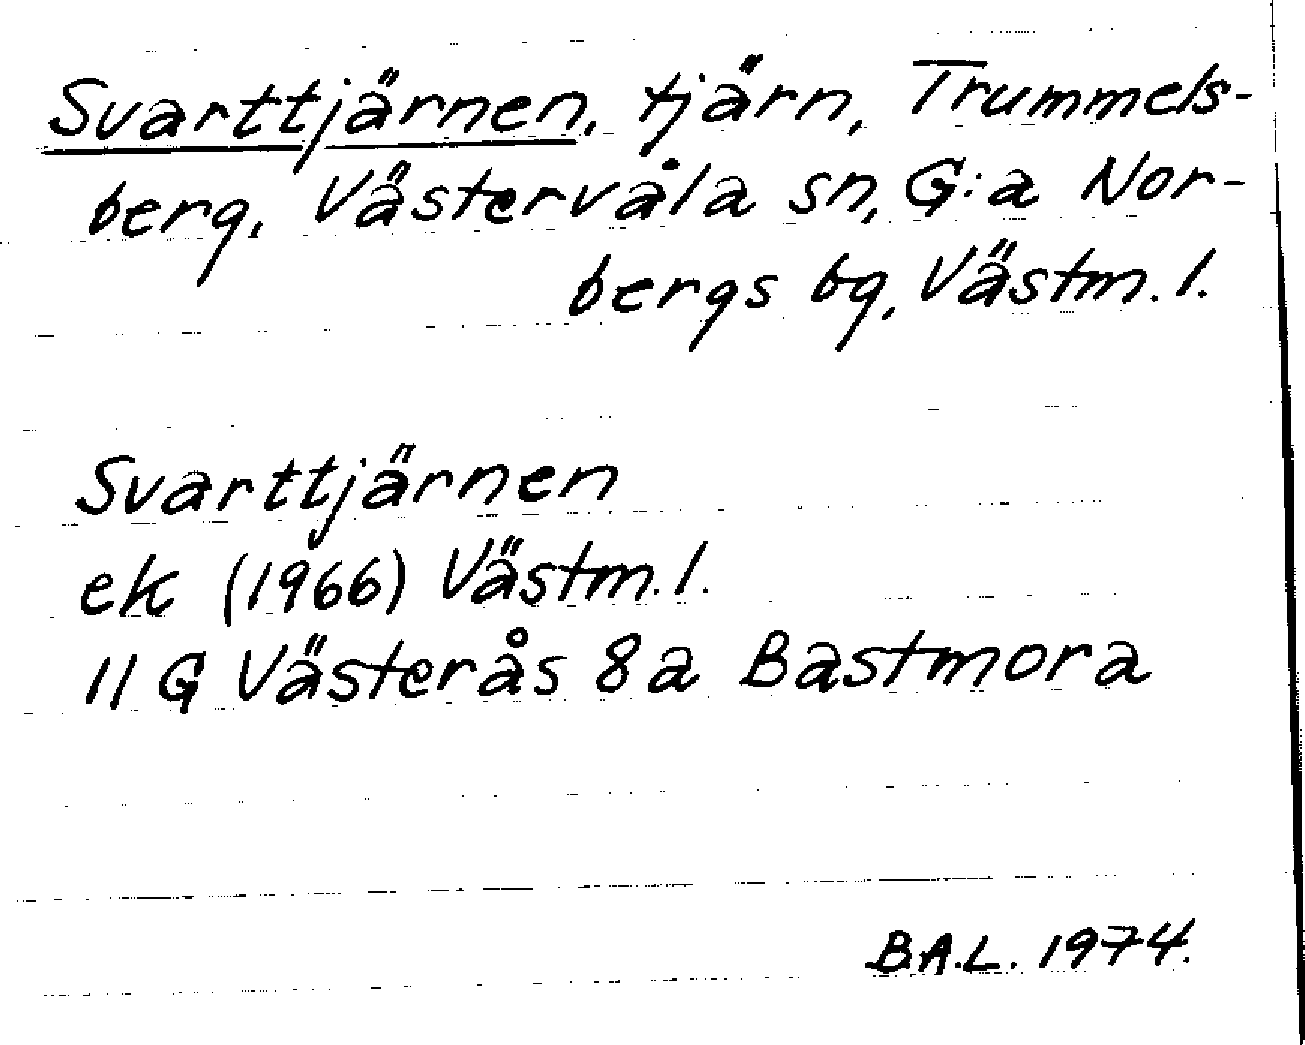 Svarttjärnen, tjärn, Trummels-
berg, Västervåla sn, G:a Nor-
bergs bg, Västm. l.
Svarttjärnen
ek (1966) Västm. l.
11 G Västerås 8a Bastmora
B.A.L. 1974.